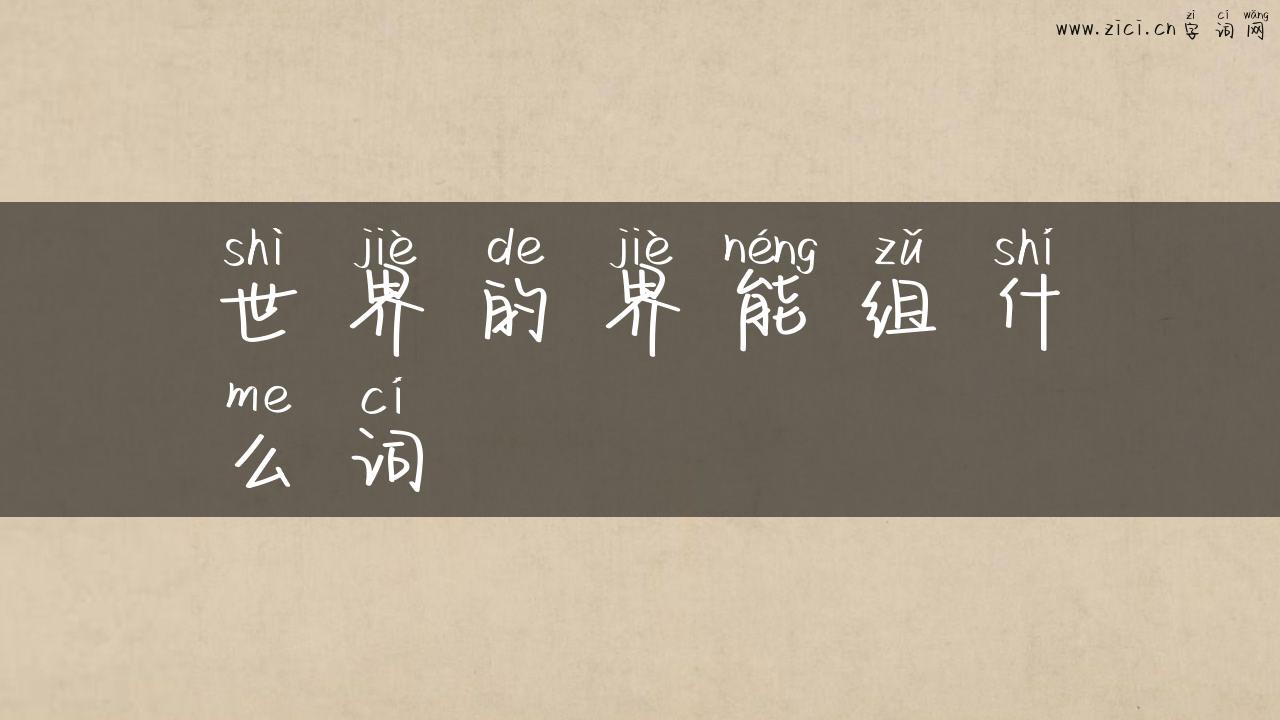 zì cí wǎng
www.zici.cn 字词网
shì jiè de jiè néng zǔ shí
世界的界能组什
me cí
么词